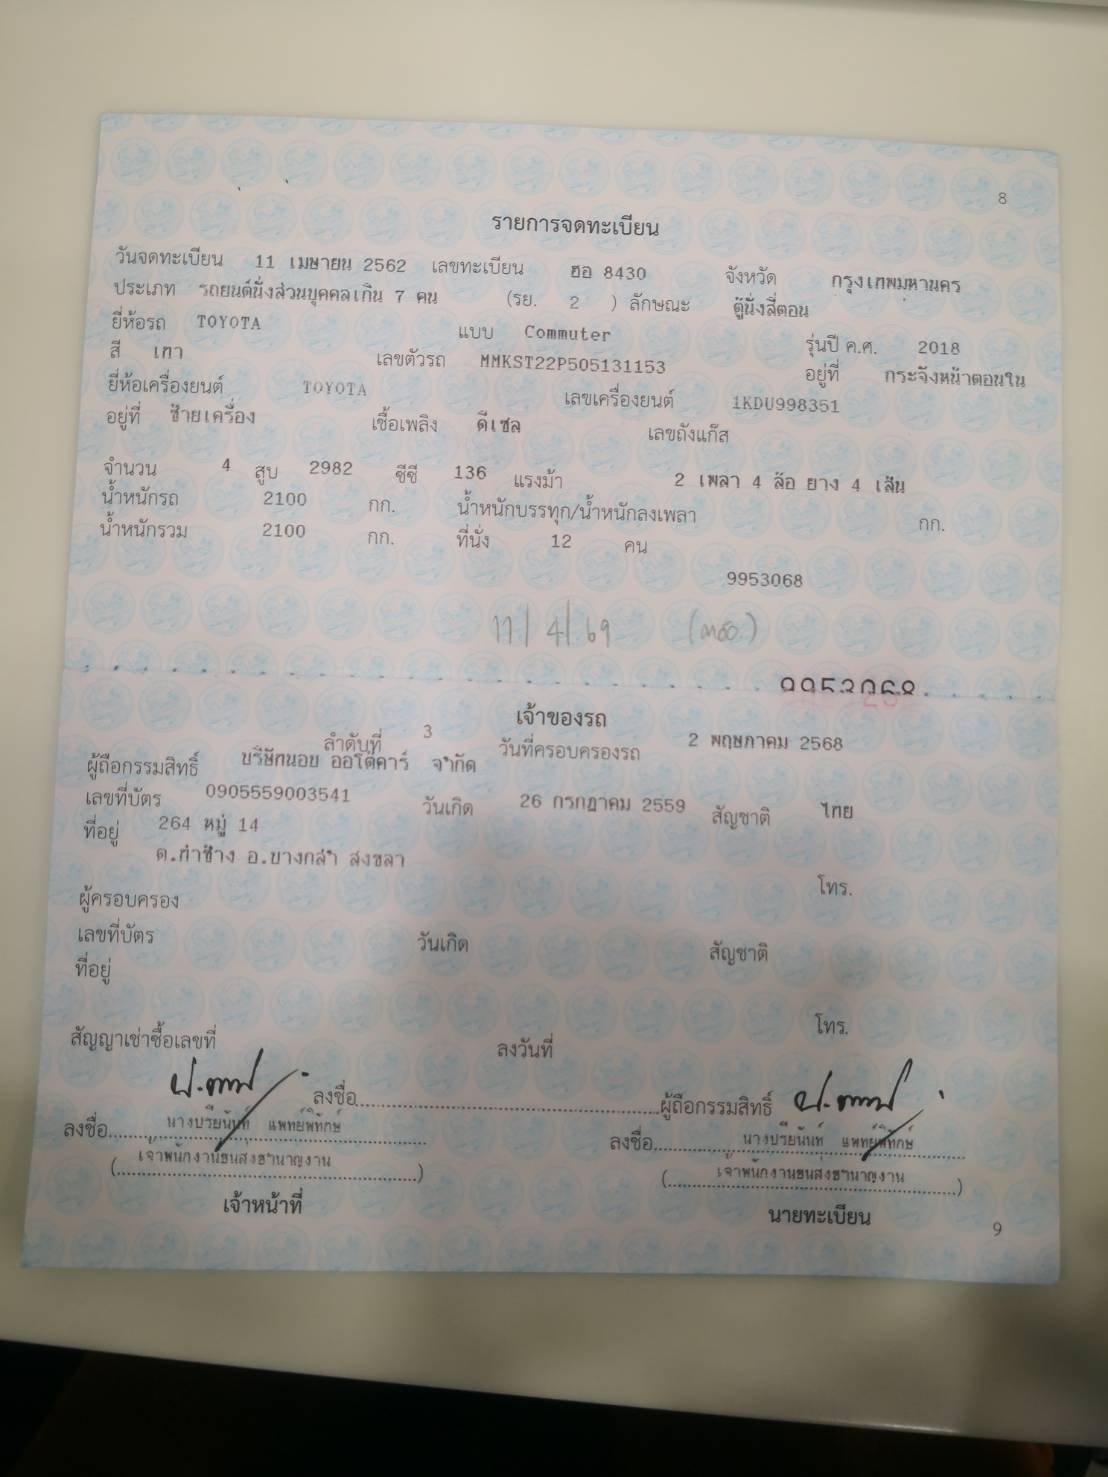 8
รายการจดทะเบียน
วันจดทะเบียน 11 เมษายน 2562 เลขทะเบียน ฮอ 8430 จังหวัด กรุงเทพมหานคร
ประเภท รถยนต์นั่งส่วนบุคคลเกิน 7 คน (รย. 2 ) ลักษณะ ตู้นั่งสี่ตอน
ยี่ห้อรถ TOYOTA แบบ Commuter รุ่นปี ค.ศ. 2018
สี เทา เลขตัวรถ MMKST22P505131153 อยู่ที่ กระจังหน้าตอนใน
ยี่ห้อเครื่องยนต์ TOYOTA เลขเครื่องยนต์ 1KDU998351
อยู่ที่ ซ้ายเครื่อง เชื้อเพลิง ดีเซล เลขถังแก๊ส
จำนวน 4 สูบ 2982 ซีซี 136 แรงม้า 2 เพลา 4 ล้อ ยาง 4 เส้น
น้ำหนักรถ 2100 กก. น้ำหนักบรรทุก/น้ำหนักลงเพลา กก.
น้ำหนักรวม 2100 กก. ที่นั่ง 12 คน
9953068
11/4/69
9953068
เจ้าของรถ
ลำดับที่ 3 วันที่ครอบครองรถ 2 พฤษภาคม 2568
ผู้ถือกรรมสิทธิ์ บริษัทนอบ ออโต้คาร์ จำกัด
เลขที่บัตร 0905559003541 วันเกิด 26 กรกฎาคม 2559 สัญชาติ ไทย
ที่อยู่ 264 หมู่ 14
ต.ท่าช้าง อ.บางกล่ำ สงขลา
โทร.
ผู้ครอบครอง
เลขที่บัตร วันเกิด สัญชาติ
ที่อยู่
โทร.
สัญญาเช่าซื้อเลขที่ ลงวันที่
ลงชื่อ ผู้ถือกรรมสิทธิ์
ลงชื่อ นางปรียนันท์ แพทย์พิทักษ์ ลงชื่อ นางปรียนันท์ แพทย์พิทักษ์
(เจ้าพนักงานขนส่งชำนาญงาน) (เจ้าพนักงานขนส่งชำนาญงาน)
เจ้าหน้าที่ นายทะเบียน
9